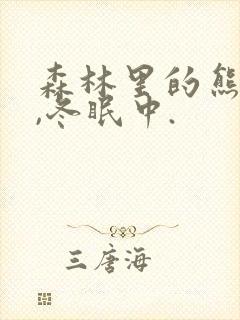 森林里的熊
,冬眠中.
三唐海